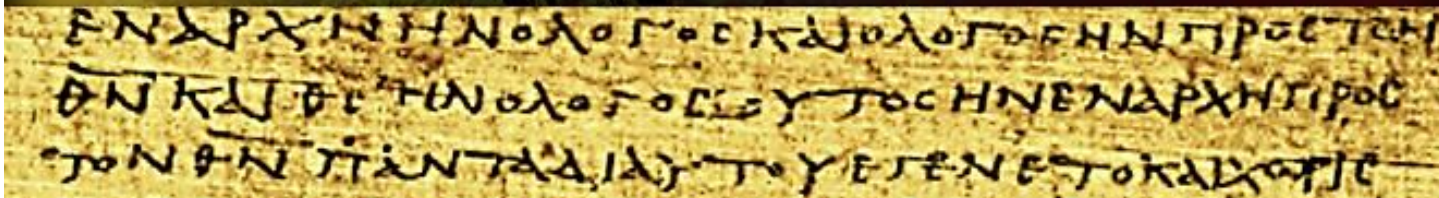 ΕΝΑΡΧΗΗΝΟΛΟΓΟϹΚΑΙΟΛΟΓΟϹΗΝΠΡΟϹΤΟΝ
Θ̅Ν̅ΚΑΙΘ̅Ϲ̅ΗΝΟΛΟΓΟϹ·ΟΥΤΟϹΗΝΕΝΑΡΧΗΠΡΟϹ
ΤΟΝΘ̅Ν̅ΠΑΝΤΑΔΙΑΥΤΟΥΕΓΕΝΕΤΟΚΑΙΧΩΡΙϹ